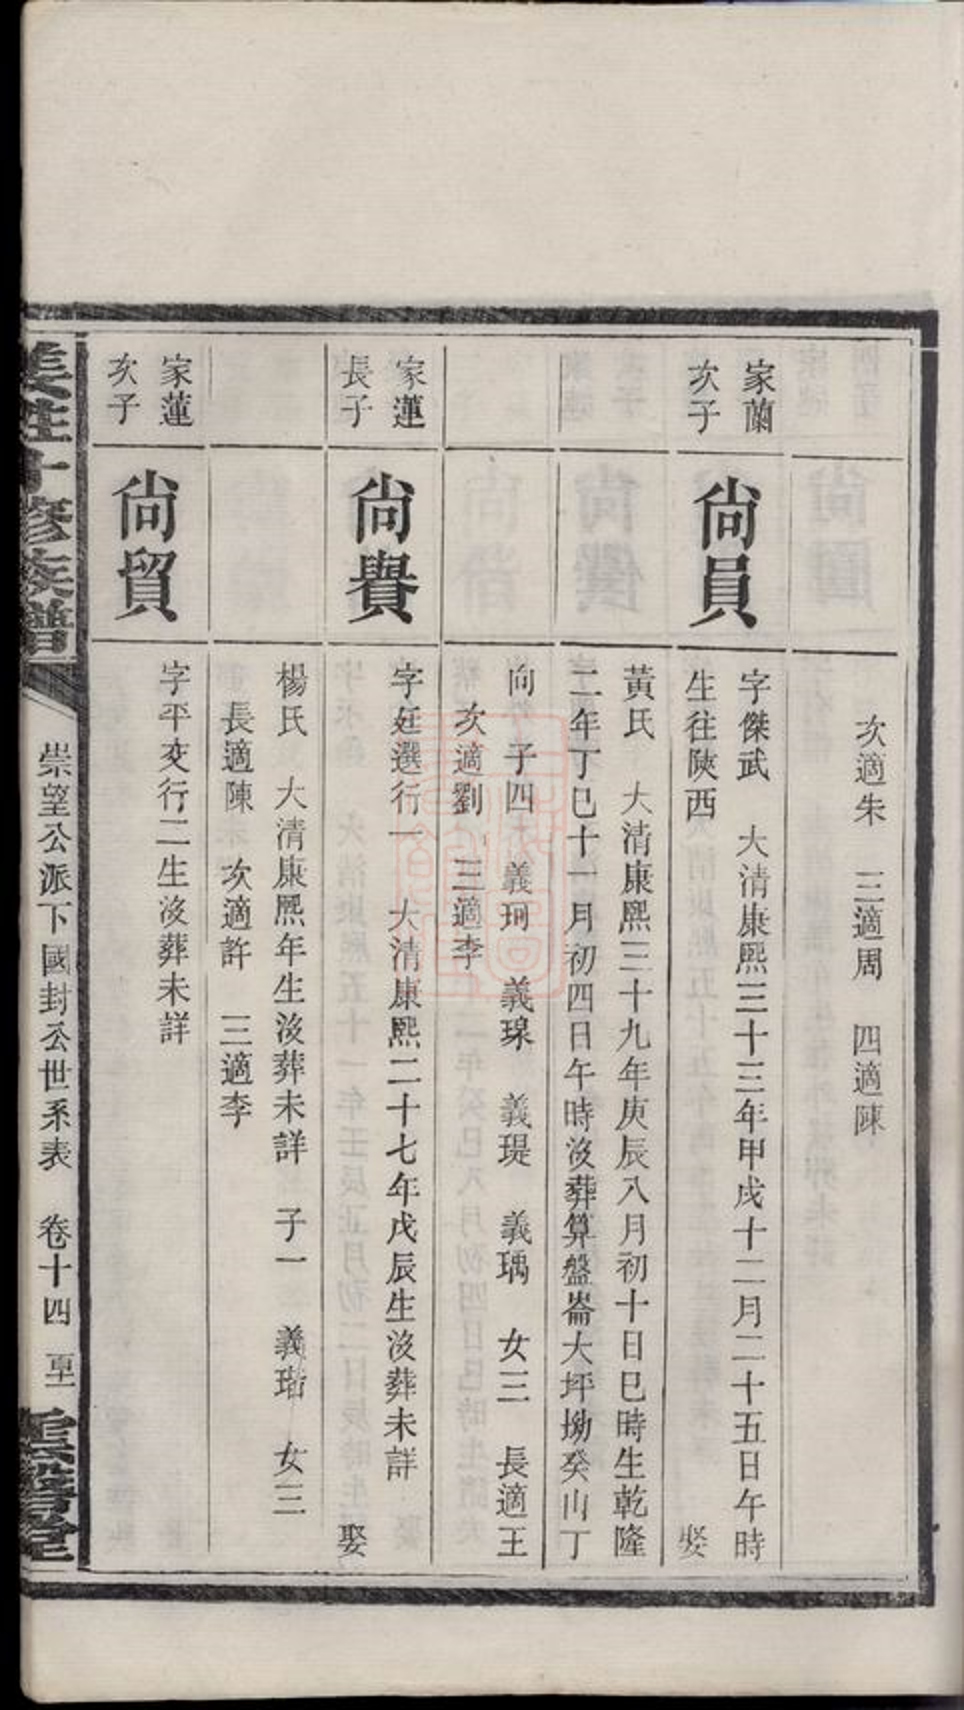 次適朱　三適周　四適陳
家蘭
次子
尙員
字傑武　大清康熙三十三年甲戌十二月二十五日午時
生往陝西　娶
黃氏　大清康熙三十九年庚辰八月初十日巳時生乾隆
二年丁巳十一月初四日午時沒葬算盤崙大坪坳癸山丁
向　子四　義珂　義瑔　義瑅　義瑀　女三　長適王
次適劉　三適李
家蓮
長子
尙譽
字廷選行一　大清康熙二十七年戊辰生沒葬未詳　娶
楊氏　大清康熙年生沒葬未詳　子一　義瑎　女三
長適陳　次適許　三適李
家蓮
次子
尙貿
字平交行二生沒葬未詳
姜姓十修族譜
崇望公派下國封公世系表　卷十四